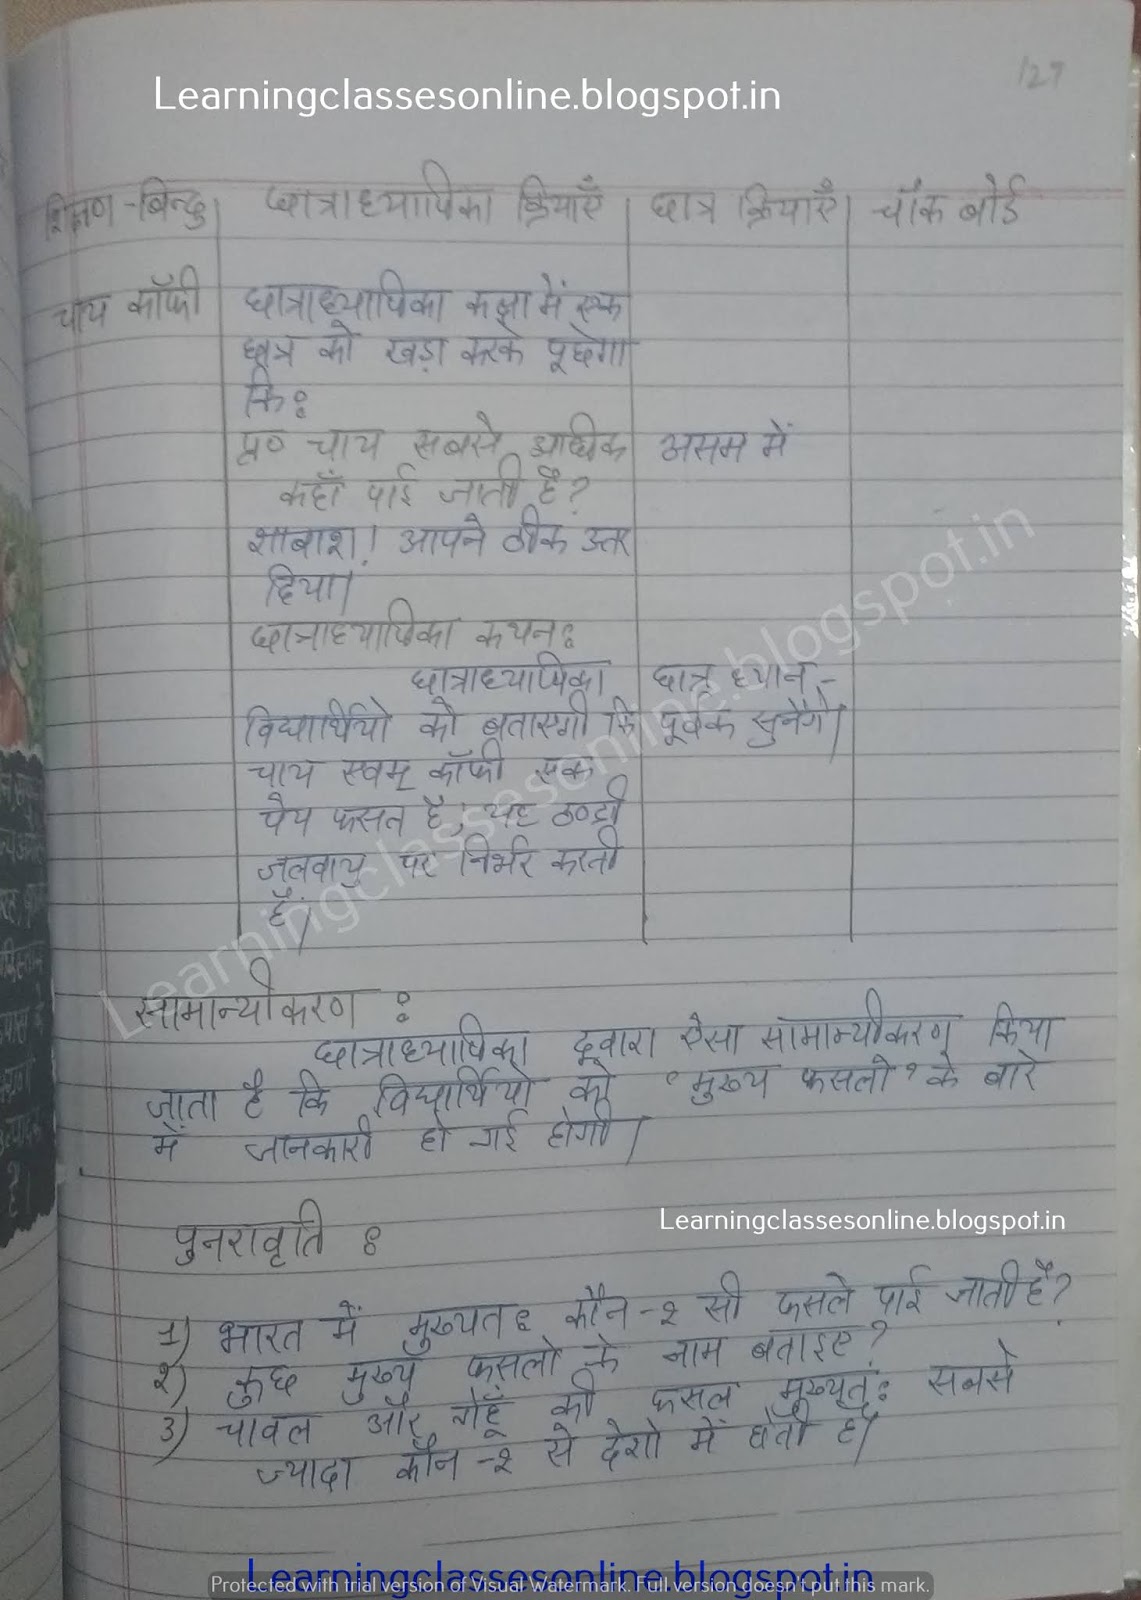 127
Learningclassesonline.blogspot.in
शिक्षण-बिन्दु | छात्राध्यापिका क्रियाएँ | छात्र क्रियाएँ | चॉक बोर्ड
चाय कॉफी छात्राध्यापिका कक्षा में एक
छात्र को खड़ा करके पूछेगा
कि:
प्र० चाय सबसे अधिक असम में
कहाँ पाई जाती है?
शाबाश! आपने ठीक उतर
दिया।
छात्राध्यापिका कथन:
छात्राध्यापिका छात्र ध्यान-
विद्यार्थियो को बताएगी कि पूर्वक सुनेंगे।
चाय एवम् कॉफी एक
पेय फसल है, यह ठण्डी
जलवायु पर निर्भर करती
है।
Learningclassesonline.blogspot.in
सामान्यीकरण :
छात्राध्यापिका द्वारा ऐसा सामान्यीकरण किया
जाता है कि विद्यार्थियो को 'मुख्य फसलो' के बारे
में जानकारी हो गई होगी।
पुनरावृति :
Learningclassesonline.blogspot.in
1) भारत में मुख्यत: कौन-२ सी फसले पाई जाती है?
२) कुछ मुख्य फसलो के नाम बताइए?
3) चावल और गेहूँ की फसल मुख्यत: सबसे
ज्यादा कौन-२ से देशो में होती है।
Learningclassesonline.blogspot.in
Protected with trial version of Visual Watermark. Full version doesn't put this mark.